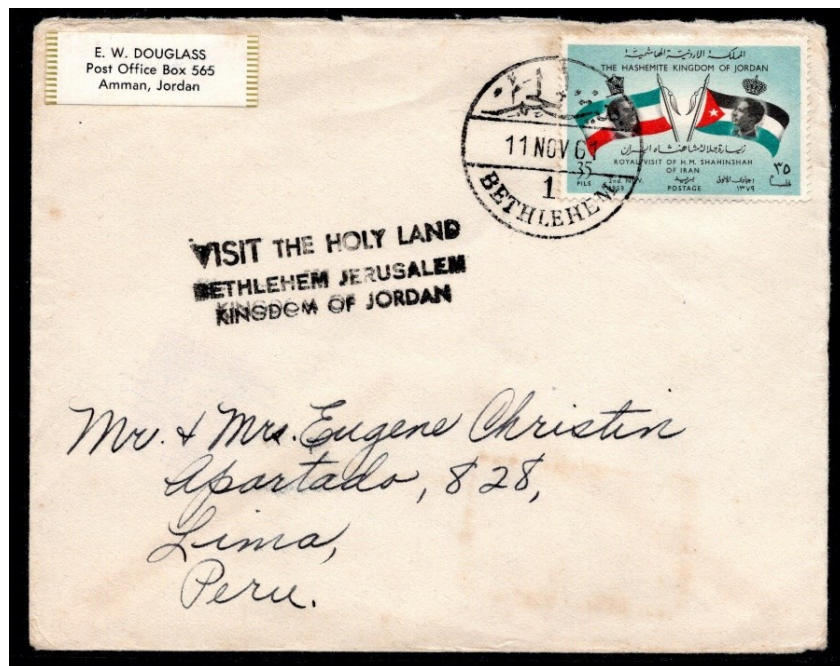 E. W. DOUGLASS
Post Office Box 565
Amman, Jordan
المملكة الاردنية الهاشمية
THE HASHEMITE KINGDOM OF JORDAN
زيارة جلالة شاهنشاه ايران
ROYAL VISIT OF H.M. SHAHINSHAH
OF IRAN
35
PILS
POSTAGE
بريد
١٣٧٩
٣٥
فلسا
11 NOV 61
1
BETHLEHEM
VISIT THE HOLY LAND
BETHLEHEM JERUSALEM
KINGDOM OF JORDAN
Mr. & Mrs. Eugene Christin
Apartado, 828,
Lima,
Peru.